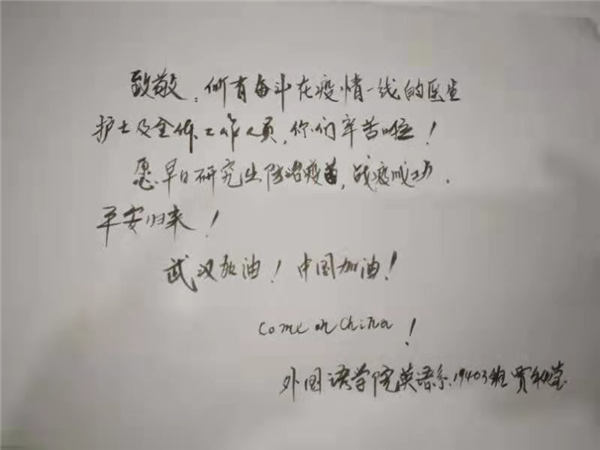 致敬：所有奋斗在疫情一线的医生
护士及全体工作人员，你们辛苦啦！
愿早日研究出防治疫苗，战疫成功，
平安归来！
武汉加油！中国加油！
Come on China！
外国语学院英语系19403班贾